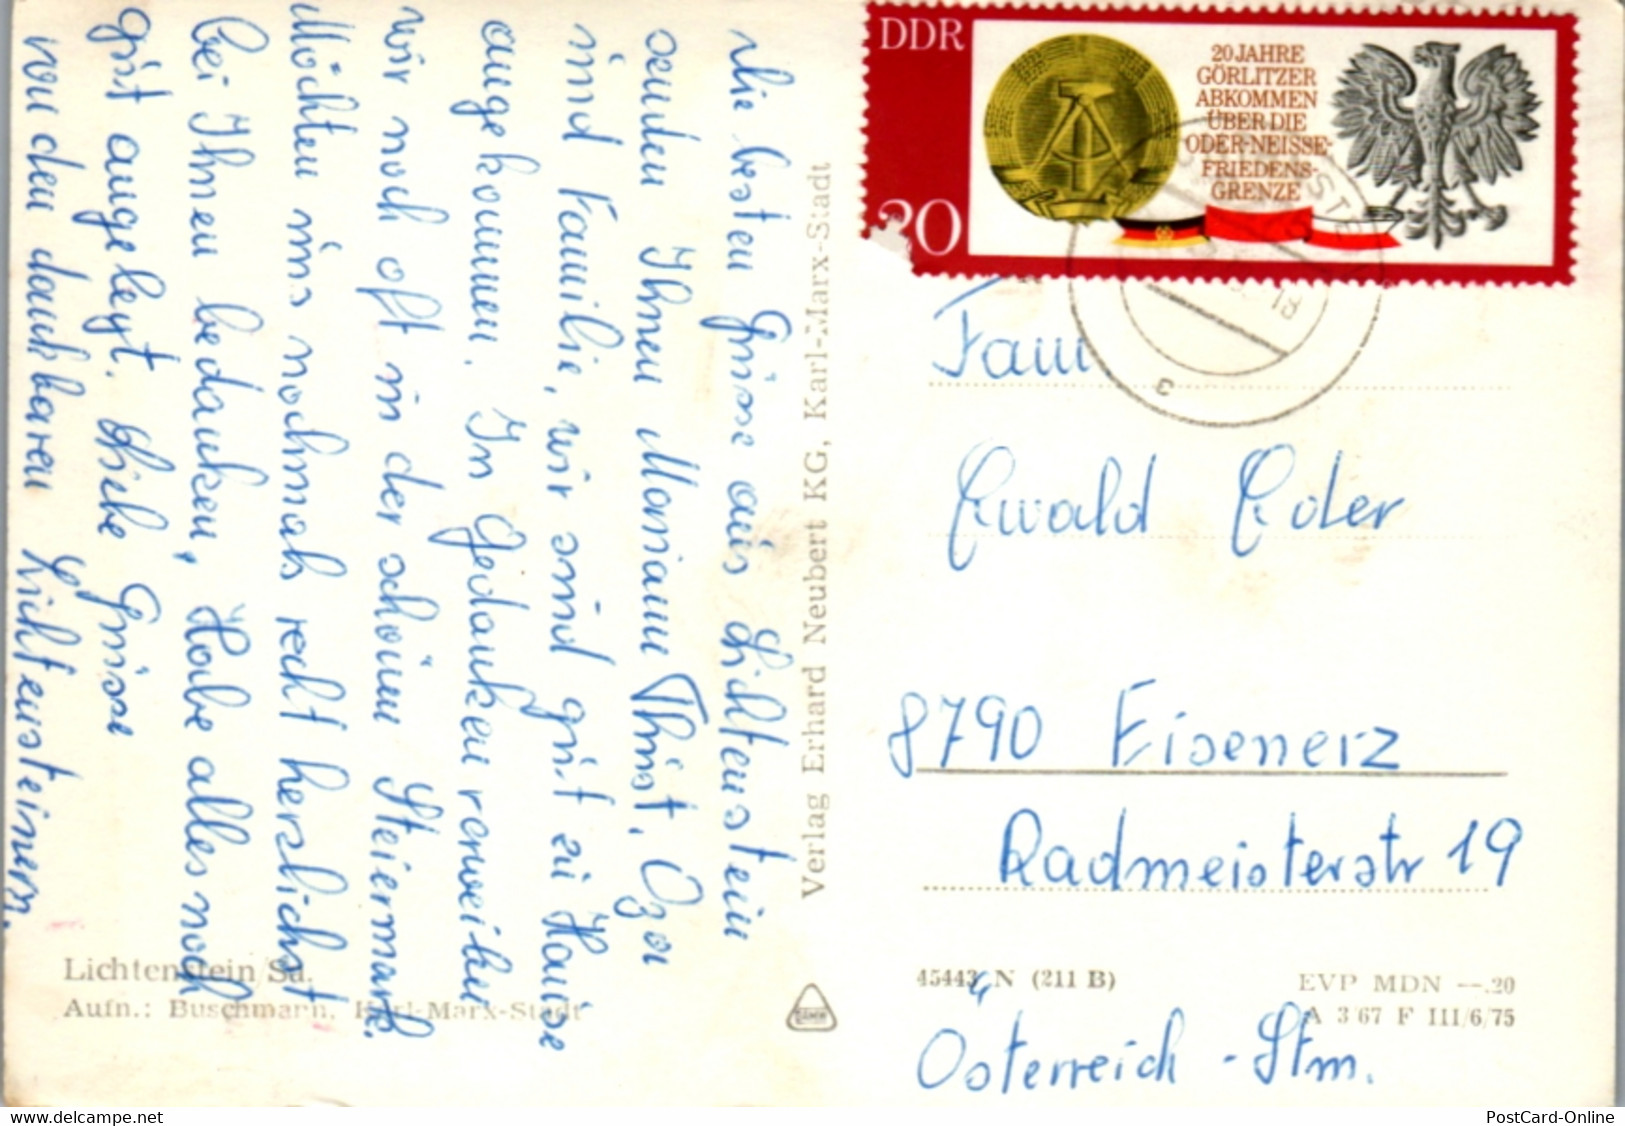 Die besten Grüsse aus Lichtenstein
senden Ihnen Mariann Thüst,
und Familie, wir sind gut zu Hause
angekommen. In Gedanken verweilen
wir noch oft in der schönen Steiermark.
Möchten uns nochmals recht herzlichst
bei Ihnen bedanken, Habe alles noch
gut angelegt. Liebe Grüsse
von den dankbaren Lichtensteinern.
Lichtenstein/Sa.
Aufn.: Buschmann, Karl-Marx-Stadt
Verlag Erhard Neubert KG, Karl-Marx-Stadt
DDR
20 JAHRE
GÖRLITZER
ABKOMMEN
ÜBER DIE
ODER-NEISSE-
FRIEDENS-
GRENZE
20
Fam
Ewald Eder
8790 Eisenerz
Radmeisterstr 19
45443 N (211 B)
EVP MDN —.20
A 3 67 F III/6/75
Österreich - Stm.
www.delcampe.net
PostCard-Online